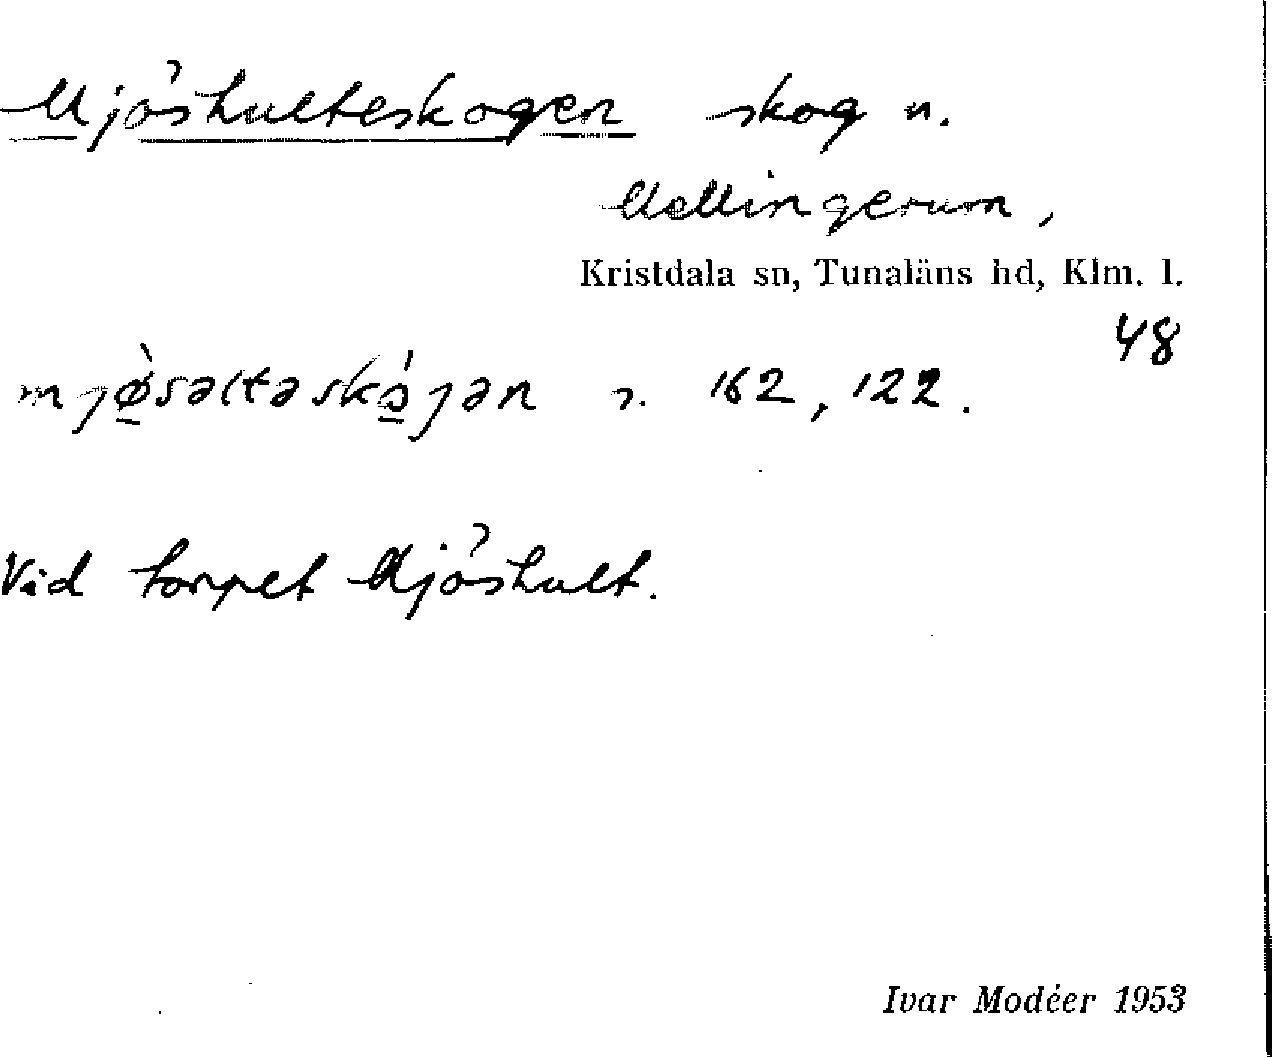 Mjöshulteskogen skog n.
Mellingerum,
Kristdala sn, Tunaläns hd, Klm. l.
48
mjø̱̀səltəskɔ̱́jən s. 162, 122.
Vid torpet Mjöshult.
Ivar Modéer 1953